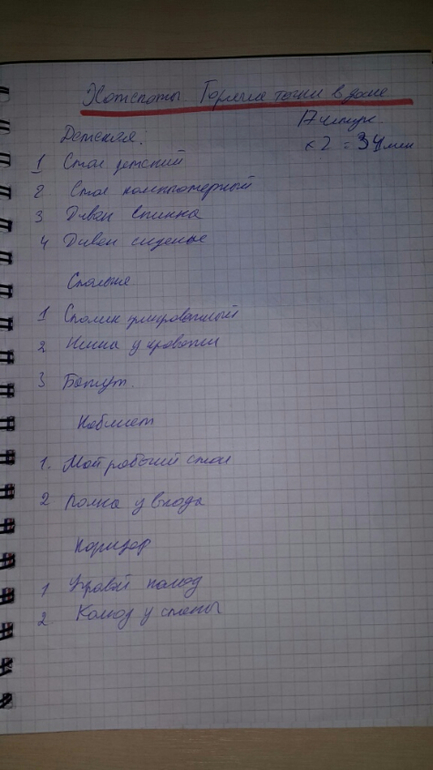 Хотспоты. Горячие точки в доме
17 штук.
× 2 = 34 мин
Детская:
1 Стол детский
2 Стол компьютерный
3. Диван спинка
4 Диван сиденье
Спальня
1 Столик
2 Ниша у кровати
3 Батут.
Кабинет
1. Мой рабочий стол
2 Полка у входа
Коридор
1 комод
2 Комод у стены